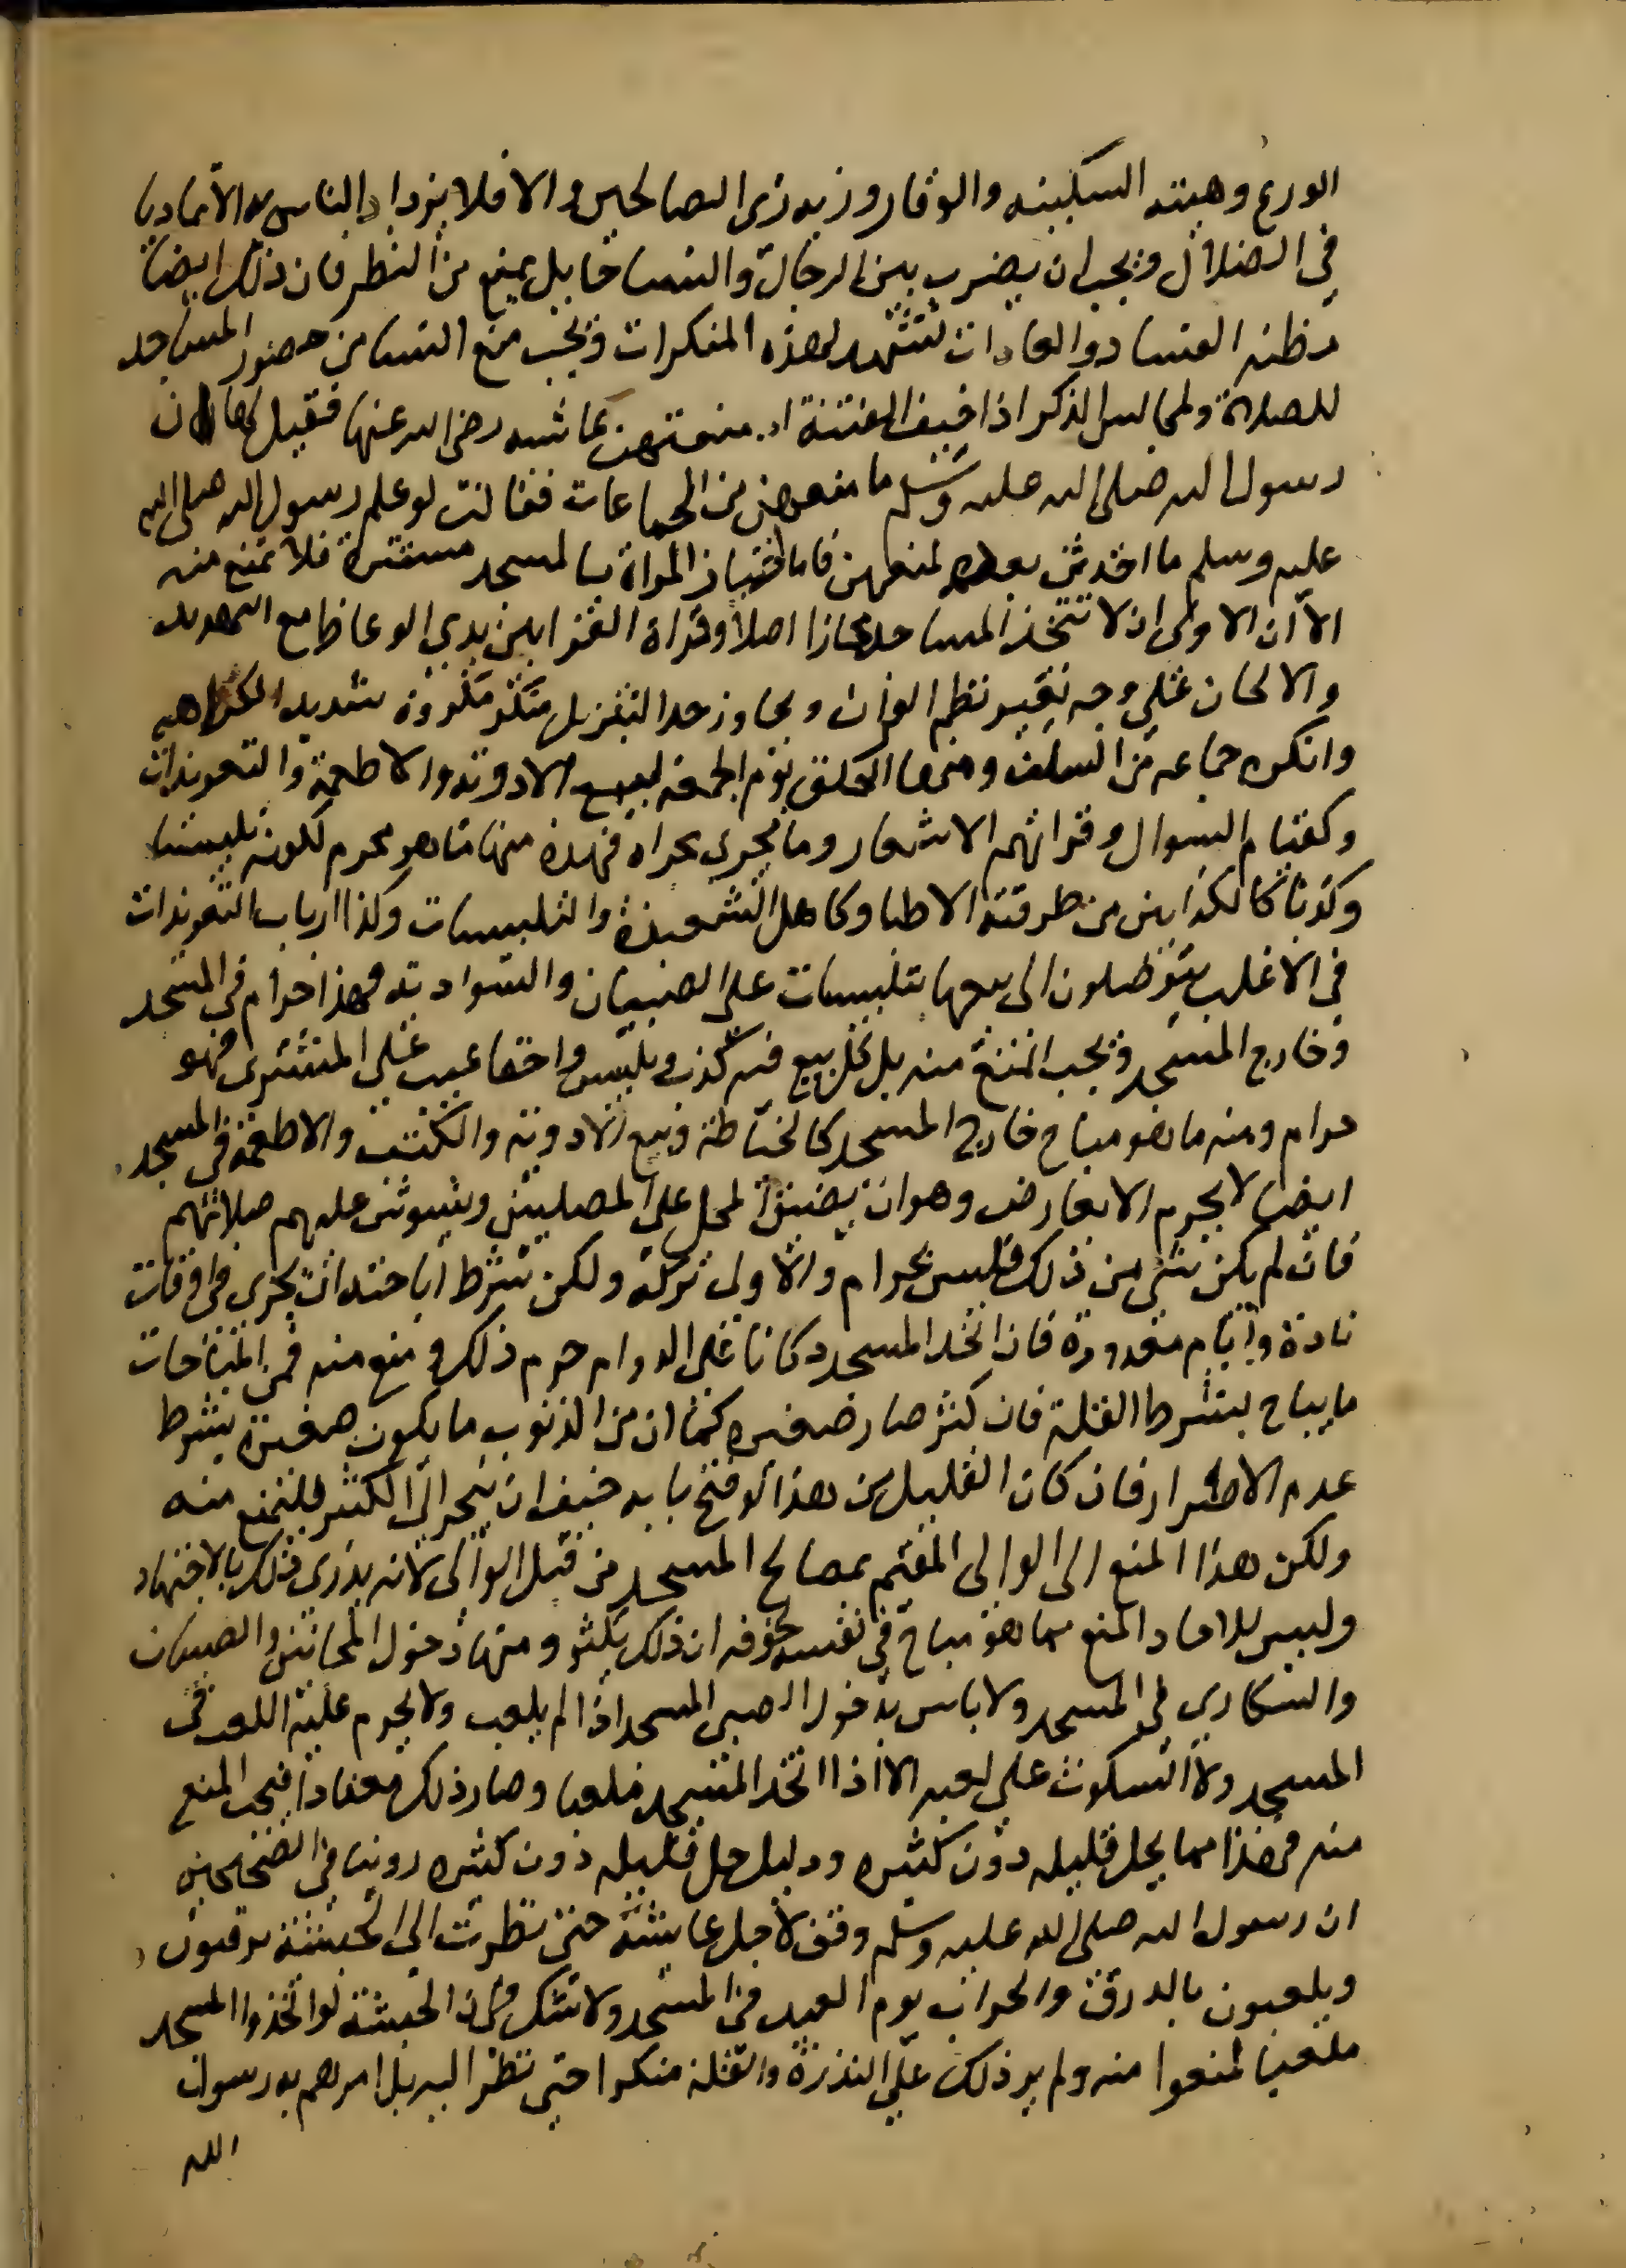 الورع وهيئته السكينه والوقار وزيه زى الصالحين والا فلا يزداد الناس به الا تماديا
في الضلال ويجب ان يضرب بين الرجال والنسا حايل يمنع من النظر فان ذلك ايضا
مظنه الفساد والعادات تشهد لهذه المنكرات ويجب منع النسا من حضور المساجد
للصلاة ولمجالس الذكر اذا خيف الفتنة اد منعتهن عاشه رضى الله عنها فقيل لها ان
رسول الله صلى الله عليه وسلم ما منعهن من الجماعات فقالت لو علم رسول الله صلى الله
عليه وسلم ما احدثن بعده لمنعهن فاما اجتياز المراة بالمسجد مستترة فلا تمنع منه
الا ان الاولى ان لا تتخذ المساجد مجازا اصلا وقراة القرا بين يدي الوعاظ مع التمديد
والالحان على وجه تغيير نظم القران ويجاوز حد التنزيل منكر مكروه شديد الكراهه
وانكره جماعه من السلف ومنها الحلق يوم الجمعه لبيع الادويه والاطعمة والتعويذات
وكقيام السوال وقراتهم الاشعار وما يجرى مجراه فهذه منها ما هو محرم لكونه تلبيسا
وكذبا كالكذابين من طرقيه الاطبا وكاهل الشعبذة والتلبيسات وكذا ارباب التعويذات
في الاغلب يتوصلون الى بيعها بتلبيسات على الصبيان والسواديه فهذا حرام في المسجد
وخارج المسجد ويجب المنع منه بل كل بيع فيه كذب وتلبيس واخفا عيب على المشترى فهو
حرام ومنه ما هو مباح خارج المسجد كالخياطة وبيع الادوية والكتب والاطعمة في المسجد
ايضا لا يحرم الا بعارض وهو ان يضيق المحل على المصلين ويشوش عليهم صلاتهم
فان لم يكن شي من ذلك فليس بحرام والاولى تركه ولكن شرط اباحته ان يجرى في اوقات
نادة وايام معدودة فان اتخد المسجد دكانا على الدوام حرم ذلك ومنع منه فمن المباحات
ما يباح بشرط القلة فان كثر صار صغيره كما ان من الذنوب ما يكون صغيرة بشرط
عدم الاصرار فان كان القليل من هذا لو فتح بابه خيف ان ينجر الى الكثير فليمنع منه
ولكن هذا المنع الى الوالى القيم بمصالح المسجد من قبل الوالى لانه يدرى ذلك بالاجتهاد
وليس للاحاد المنع مما هو مباح في نفسه لخوفه ان ذلك يكثر ومنها دخول المجانين والصبيان
والسكارى في المسجد ولا باس بدخول الصبى المسجد اذا لم يلعب ولا يحرم عليه اللعب في
المسجد ولا السكوت على لعبه الا اذا اتخذ المسجد ملعبا وصار ذلك معتادا فيجب المنع
منه فهذا مما يحل قليله دون كثيره ودليل حل قليله دون كثيره روينا في الصحيحين
ان رسول الله صلى الله عليه وسلم وقف لاجل عايشة حتى نظرت الى الحبشة يرقصون
ويلعبون بالدرق والحراب يوم العيد في المسجد ولا شك في ان الحبشة لو اتخذوا المسجد
ملعبا لمنعوا منه ولم ير ذلك على الندرة والقلة منكرا حتى نظر اليه بل امرهم به رسول
الله